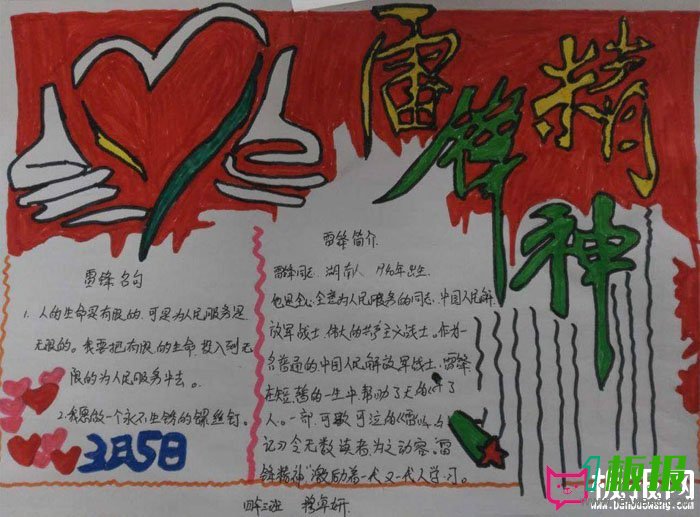 雷锋精神
雷锋名句
1. 人的生命是有限的,可是为人民服务是
无限的。我要把有限的生命,投入到无
限的为人民服务中去。
2.我愿做一个永不生锈的螺丝钉。
3月5日
雷锋简介
雷锋同志,湖南人,1940年出生.
他是全心全意为人民服务的同志,中国人民解
放军战士,伟大的共产主义战士。作为一
名普通的中国人民解放军战士,雷锋
在短暂的一生中帮助了无数
人。一部可歌可泣的《雷
记》令无数读者为之动容。"雷
锋精神"激励着一代又一代人学习。
板报
板报网
www.banbaowang.com